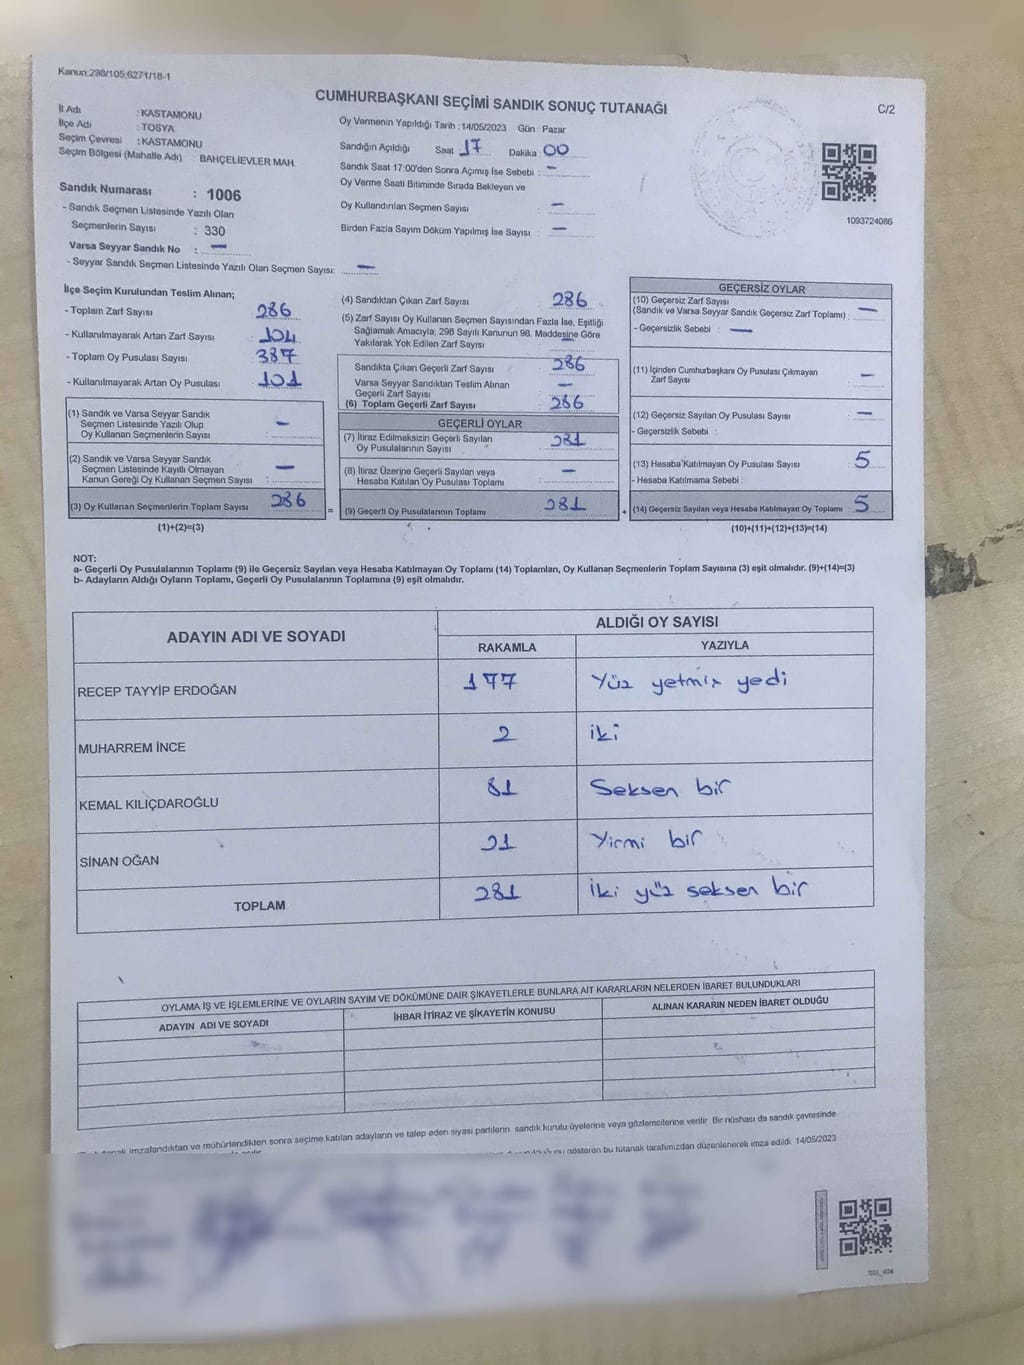 Kanun:298/105;6271/18-1
CUMHURBAŞKANI SEÇİMİ SANDIK SONUÇ TUTANAĞI
C/2
İl Adı : KASTAMONU
İlçe Adı : TOSYA
Seçim Çevresi : KASTAMONU
Seçim Bölgesi (Mahalle Adı) : BAHÇELİEVLER MAH.
Sandık Numarası : 1006
- Sandık Seçmen Listesinde Yazılı Olan
Seçmenlerin Sayısı : 330
Varsa Seyyar Sandık No : —
- Seyyar Sandık Seçmen Listesinde Yazılı Olan Seçmen Sayısı: —
Oy Vermenin Yapıldığı Tarih : 14/05/2023 Gün : Pazar
Sandığın Açıldığı Saat 17 Dakika : 00
Sandık Saat 17:00'den Sonra Açımış İse Sebebi : —
Oy Verme Saati Bitiminde Sırada Bekleyen ve
Oy Kullandırılan Seçmen Sayısı : —
Birden Fazla Sayım Döküm Yapılmış İse Sayısı : —
1093724086
İlçe Seçim Kurulundan Teslim Alınan;
- Toplam Zarf Sayısı : 286
- Kullanılmayarak Artan Zarf Sayısı : 104
- Toplam Oy Pusulası Sayısı : 387
- Kullanılmayarak Artan Oy Pusulası : 101
(1) Sandık ve Varsa Seyyar Sandık
Seçmen Listesinde Yazılı Olup
Oy Kullanan Seçmenlerin Sayısı : —
(2) Sandık ve Varsa Seyyar Sandık
Seçmen Listesinde Kayıtlı Olmayan
Kanun Gereği Oy Kullanan Seçmen Sayısı : —
(3) Oy Kullanan Seçmenlerin Toplam Sayısı : 286
(1)+(2)=(3)
=
(4) Sandıktan Çıkan Zarf Sayısı : 286
(5) Zarf Sayısı Oy Kullanan Seçmen Sayısından Fazla İse, Eşitliği
Sağlamak Amacıyla, 298 Sayılı Kanunun 98. Maddesine Göre
Yakılarak Yok Edilen Zarf Sayısı :
Sandıkta Çıkan Geçerli Zarf Sayısı : 286
Varsa Seyyar Sandıktan Teslim Alınan
Geçerli Zarf Sayısı : —
(6) Toplam Geçerli Zarf Sayısı : 286
GEÇERLİ OYLAR
(7) İtiraz Edilmeksizin Geçerli Sayılan
Oy Pusulalarının Sayısı : 281
(8) İtiraz Üzerine Geçerli Sayılan veya
Hesaba Katılan Oy Pusulası Toplamı : —
(9) Geçerli Oy Pusulalarının Toplamı : 281
+
GEÇERSİZ OYLAR
(10) Geçersiz Zarf Sayısı
(Sandık ve Varsa Seyyar Sandık Geçersiz Zarf Toplamı) : —
- Geçersizlik Sebebi : —
(11) İçinden Cumhurbaşkanı Oy Pusulası Çıkmayan
Zarf Sayısı : —
(12) Geçersiz Sayılan Oy Pusulası Sayısı : —
- Geçersizlik Sebebi :
(13) Hesaba Katılmayan Oy Pusulası Sayısı : 5
- Hesaba Katılmama Sebebi :
(14) Geçersiz Sayılan veya Hesaba Katılmayan Oy Toplamı : 5
(10)+(11)+(12)+(13)=(14)
NOT:
a- Geçerli Oy Pusulalarının Toplamı (9) ile Geçersiz Sayılan veya Hesaba Katılmayan Oy Toplamı (14) Toplamları, Oy Kullanan Seçmenlerin Toplam Sayısına (3) eşit olmalıdır. (9)+(14)=(3)
b- Adayların Aldığı Oyların Toplamı, Geçerli Oy Pusulalarının Toplamına (9) eşit olmalıdır.
ADAYIN ADI VE SOYADI ALDIĞI OY SAYISI
RAKAMLA YAZIYLA
RECEP TAYYİP ERDOĞAN 177 Yüz yetmiş yedi
MUHARREM İNCE 2 iki
KEMAL KILIÇDAROĞLU 81 Seksen bir
SİNAN OĞAN 21 Yirmi bir
TOPLAM 281 iki yüz seksen bir
OYLAMA İŞ VE İŞLEMLERİNE VE OYLARIN SAYIM VE DÖKÜMÜNE DAİR ŞİKAYETLERLE BUNLARA AİT KARARLARIN NELERDEN İBARET BULUNDUKLARI
ADAYIN ADI VE SOYADI İHBAR İTİRAZ VE ŞİKAYETİN KONUSU ALINAN KARARIN NEDEN İBARET OLDUĞU
imzalandıktan ve mühürlendikten sonra seçime katılan adayların ve talep eden siyasi partilerin sandık kurulu üyelerine veya gözlemcilerine verilir. Bir nüshası da sandık çevresinde
gösteren bu tutanak tarafımızdan düzenlenerek imza edildi. 14/05/2023